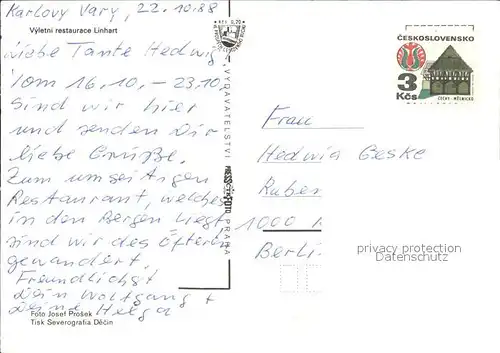 Karlovy Vary, 22.10.88
Výletní restaurace Linhart
Liebe Tante Hedwig,
Vom 16.10. - 23.10.
sind wir hier
und senden Dir
liebe Grüße.
Zum umseitigen
Restaurant, welches
in den Bergen liegt,
sind wir des Öfteren
gewandert.
Freundlichst
Dein Wolfgang +
Deine Helga
Foto Josef Prošek
Tisk Severografia Děčín
VYDAVATELSTVÍ
PRESSFOTO
PRAHA
ČESKOSLOVENSKO
3
Kčs
ČECHY - MĚLNICKO
Frau
Hedwig Geske
Ruben
1000
Berlin
privacy protection
Datenschutz